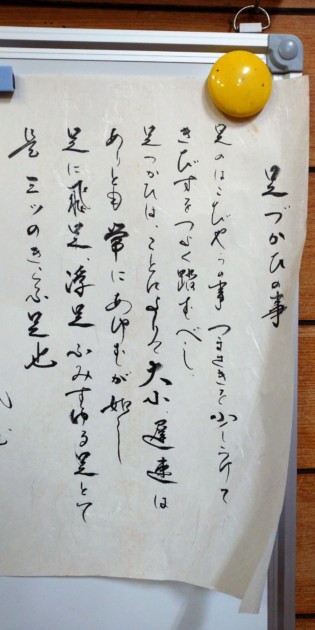 足づかひの事
足のはこびやうの事 つまさきを少しうけて
きびすをつよく踏むべし
足つかひは、ことによりて大小、遅速は
ありとも常にあゆむが如し
足に飛足、浮足、ふみすゆる足とて
是三ツのきらふ足也